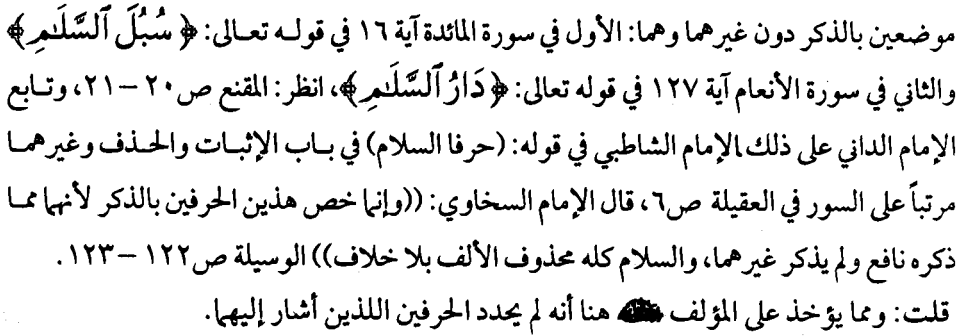 موضعين بالذكر دون غيرهما وهما: الأول في سورة المائدة آية ١٦ في قوله تعالى: ﴿ سُبُلَ ٱلسَّلَـٰمِ ﴾
والثاني في سورة الأنعام آية ١٢٧ في قوله تعالى: ﴿ دَارُ ٱلسَّلَـٰمِ ﴾، انظر: المقنع ص٢٠ – ٢١، وتابع
الإمام الداني على ذلك الإمام الشاطبي في قوله: (حرفا السلام) في باب الإثبات والحذف وغيرهما
مرتباً على السور في العقيلة ص٦، قال الإمام السخاوي: ((وإنما خص هذين الحرفين بالذكر لأنهما مما
ذكره نافع ولم يذكر غيرهما، والسلام كله محذوف الألف بلا خلاف)) الوسيلة ص١٢٢ – ١٢٣.
قلت: ومما يؤخذ على المؤلف هنا أنه لم يحدد الحرفين اللذين أشار إليهما.